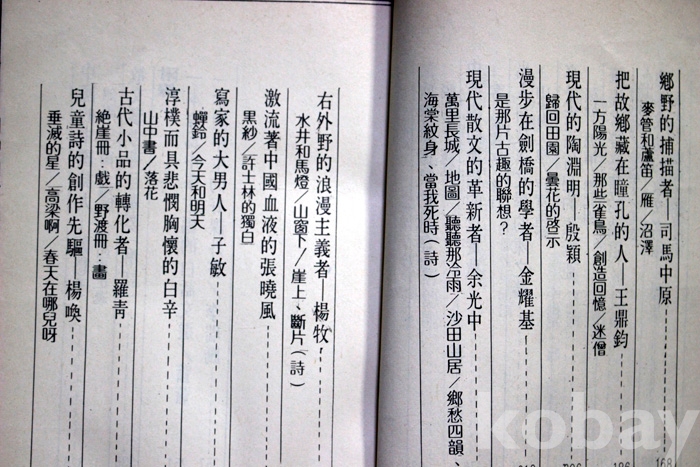 鄉野的捕描者—司馬中原
麥管和蘆笛／雁／沼澤
168
把故鄉藏在瞳孔的人—王鼎鈞
一方陽光／那些雀鳥／創造回憶／迷僧
現代的陶淵明—殷穎
歸回田園／曇花的啓示
漫步在劍橋的學者—金耀基
是那片古趣的聯想？
現代散文的革新者—余光中
萬里長城／地圖／聽聽那冷雨／沙田山居／鄉愁四韻、
海棠紋身、當我死時（詩）
右外野的浪漫主義者—楊牧
水井和馬燈／山窗下／崖上、斷片（詩）
激流著中國血液的張曉風
黑紗／許士林的獨白
寫家的大男人—子敏
蟬鈴／今天和明天
淳樸而具悲憫胸懷的白辛
山中書／落花
古代小品的轉化者—羅青
絶崖冊：戲／野渡冊：畫
兒童詩的創作先驅—楊喚
垂滅的星／高梁啊／春天在哪兒呀
kobay